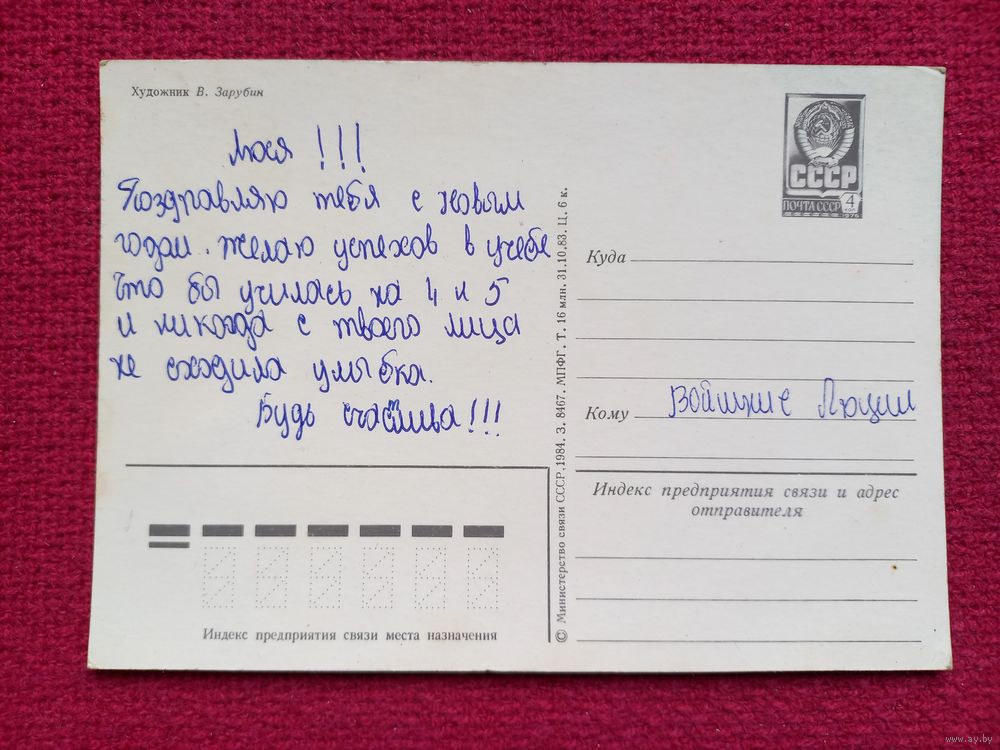 Художник В. Зарубин
Люся !!!
Поздравляю тебя с новым
годом. желаю успехов в учебе
что бы училась на 4 и 5
и никогда с твоего лица
не сходила улыбка.
Будь счастлива!!!
Индекс предприятия связи места назначения
© Министерство связи СССР, 1984. З. 8467. МПФГ. Т. 16 млн. 31.10.83. Ц. 6 к.
СССР
ПОЧТА СССР 4 КОП
1976
Куда
Кому Люции
Индекс предприятия связи и адрес
отправителя
www.ay.by